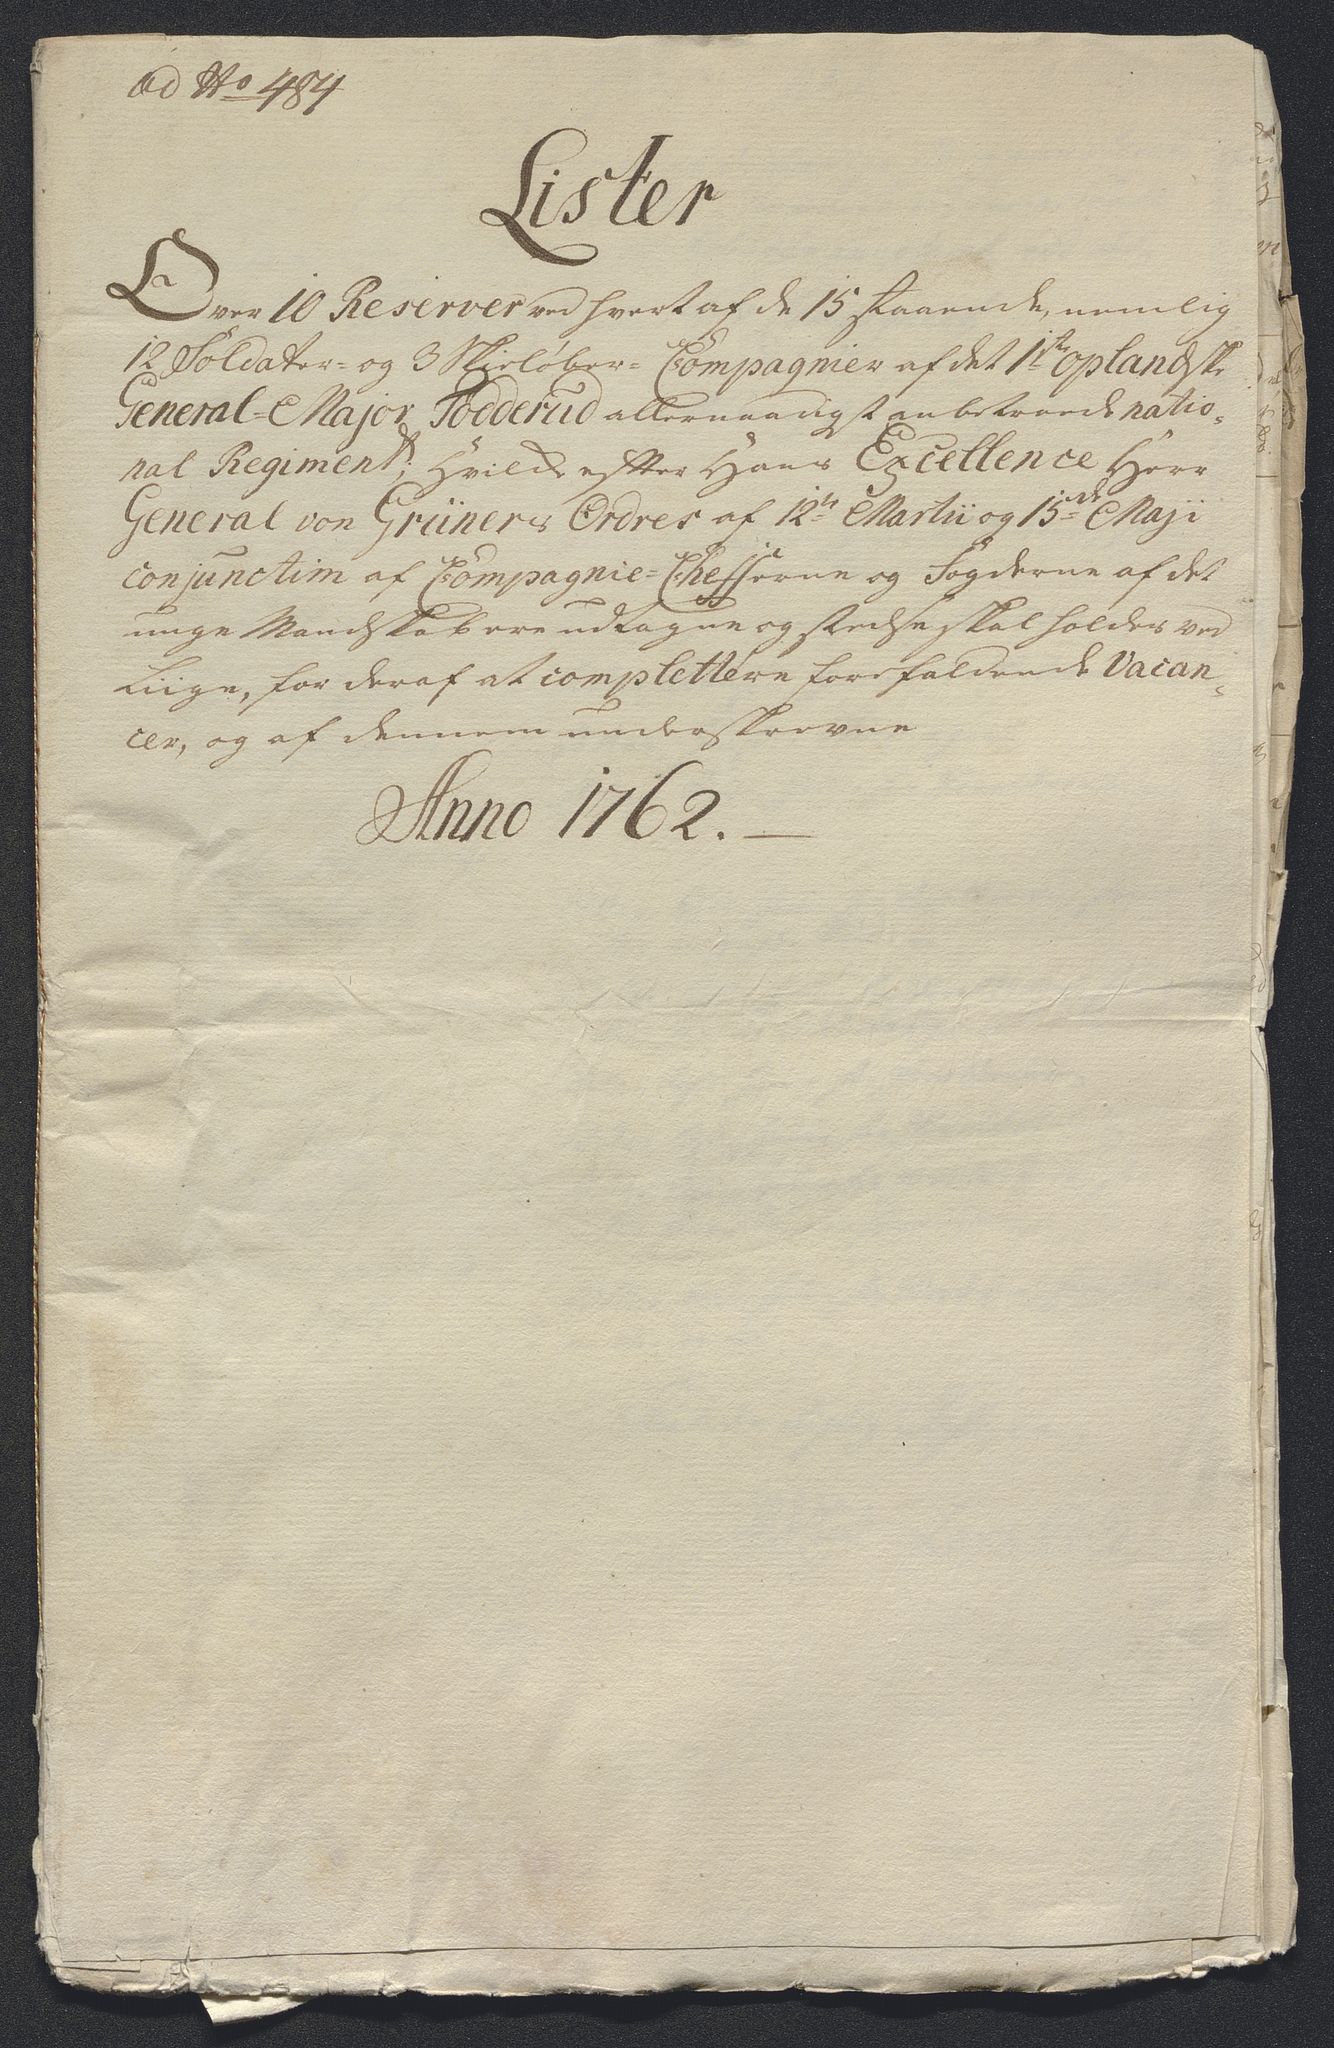 ad No 484
Lister
Over 10 Reserver ved hvert af de 15 staaende, nemlig
12 Soldater- og 3 Skieløber- Compagnier af det 1ste oplandske
General-Major Todderud allernaadigst anbetroede natio-
nal Regiment; Hvilde effter Hans Excellence Herr
General von Grüners Ordres af 12te Martii og 15de Maji
conjunctim af Compagnie-Chefferne og Fogderne af det
unge Mandskab ere udtagne og stedse skal holdes ved
Liige, for deraf at complettere forefaldende Vacan-
cer, og af dennem underskrevne
Anno 1762. —